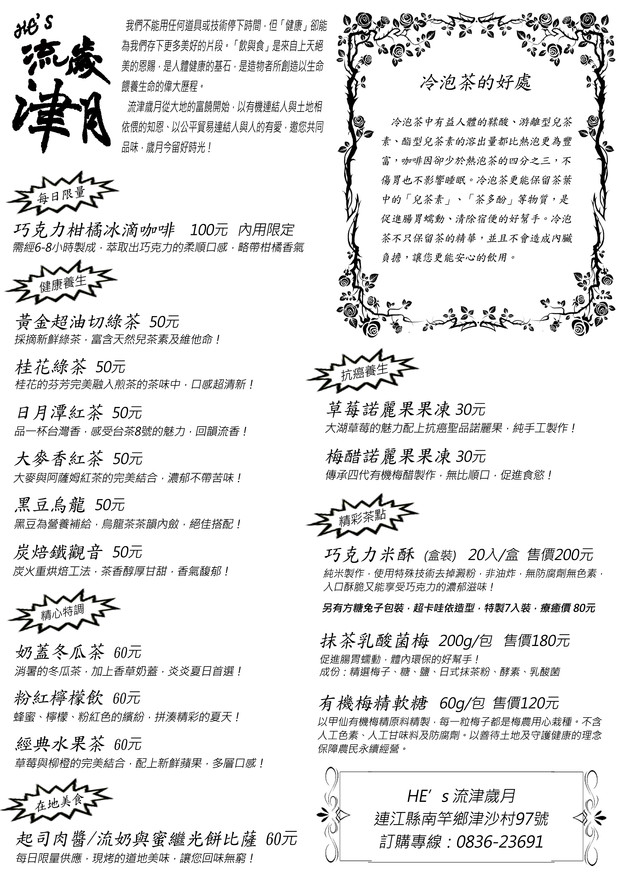 HE's
流津歲月
我們不能用任何道具或技術停下時間，但「健康」卻能
為我們存下更多美好的片段。「飲與食」是來自上天絕
美的恩賜，是人體健康的基石，是造物者所創造以生命
餵養生命的偉大歷程。
流津歲月從大地的富饒開始，以有機連結人與土地相
依偎的知恩、以公平貿易連結人與人的有愛，邀您共同
品味，歲月今留好時光！
每日限量
巧克力柑橘冰滴咖啡 100元 內用限定
需經6-8小時製成，萃取出巧克力的柔順口感，略帶柑橘香氣
健康養生
黃金超油切綠茶 50元
採摘新鮮綠茶，富含天然兒茶素及維他命！
桂花綠茶 50元
桂花的芬芳完美融入煎茶的茶味中，口感超清新！
日月潭紅茶 50元
品一杯台灣香，感受台茶8號的魅力，回韻流香！
大麥香紅茶 50元
大麥與阿薩姆紅茶的完美結合，濃郁不帶苦味！
黑豆烏龍 50元
黑豆為營養補給，烏龍茶茶韻內斂，絕佳搭配！
炭焙鐵觀音 50元
炭火重烘焙工法，茶香醇厚甘甜，香氣馥郁！
精心特調
奶蓋冬瓜茶 60元
消暑的冬瓜茶，加上香草奶蓋，炎炎夏日首選！
粉紅檸檬飲 60元
蜂蜜、檸檬、粉紅色的繽紛，拼湊精彩的夏天！
經典水果茶 60元
草莓與柳橙的完美結合，配上新鮮蘋果，多層口感！
在地美食
起司肉醬/流奶與蜜繼光餅比薩 60元
每日限量供應，現烤的道地美味，讓您回味無窮！
冷泡茶的好處
冷泡茶中有益人體的鞣酸、游離型兒茶
素、酯型兒茶素的溶出量都比熱泡更為豐
富，咖啡因卻少於熱泡茶的四分之三，不
傷胃也不影響睡眠。冷泡茶更能保留茶葉
中的「兒茶素」、「茶多酚」等物質，是
促進腸胃蠕動、清除宿便的好幫手。冷泡
茶不只保留茶的精華，並且不會造成內臟
負擔，讓您更能安心的飲用。
抗癌養生
草莓諾麗果果凍 30元
大湖草莓的魅力配上抗癌聖品諾麗果，純手工製作！
梅醋諾麗果果凍 30元
傳承四代有機梅醋製作，無比順口，促進食慾！
精彩茶點
巧克力米酥 (盒裝) 20入/盒 售價200元
純米製作，使用特殊技術去掉澱粉，非油炸，無防腐劑無色素，
入口酥脆又能享受巧克力的濃郁滋味！
另有方糖兔子包裝，超卡哇依造型，特製7入裝，療癒價 80元
抹茶乳酸菌梅 200g/包 售價180元
促進腸胃蠕動，體內環保的好幫手！
成份：精選梅子、糖、鹽、日式抹茶粉、酵素、乳酸菌
有機梅精軟糖 60g/包 售價120元
以甲仙有機梅精原料精製，每一粒梅子都是梅農用心栽種。不含
人工色素、人工甘味料及防腐劑。以善待土地及守護健康的理念
保障農民永續經營。
HE's 流津歲月
連江縣南竿鄉津沙村97號
訂購專線：0836-23691